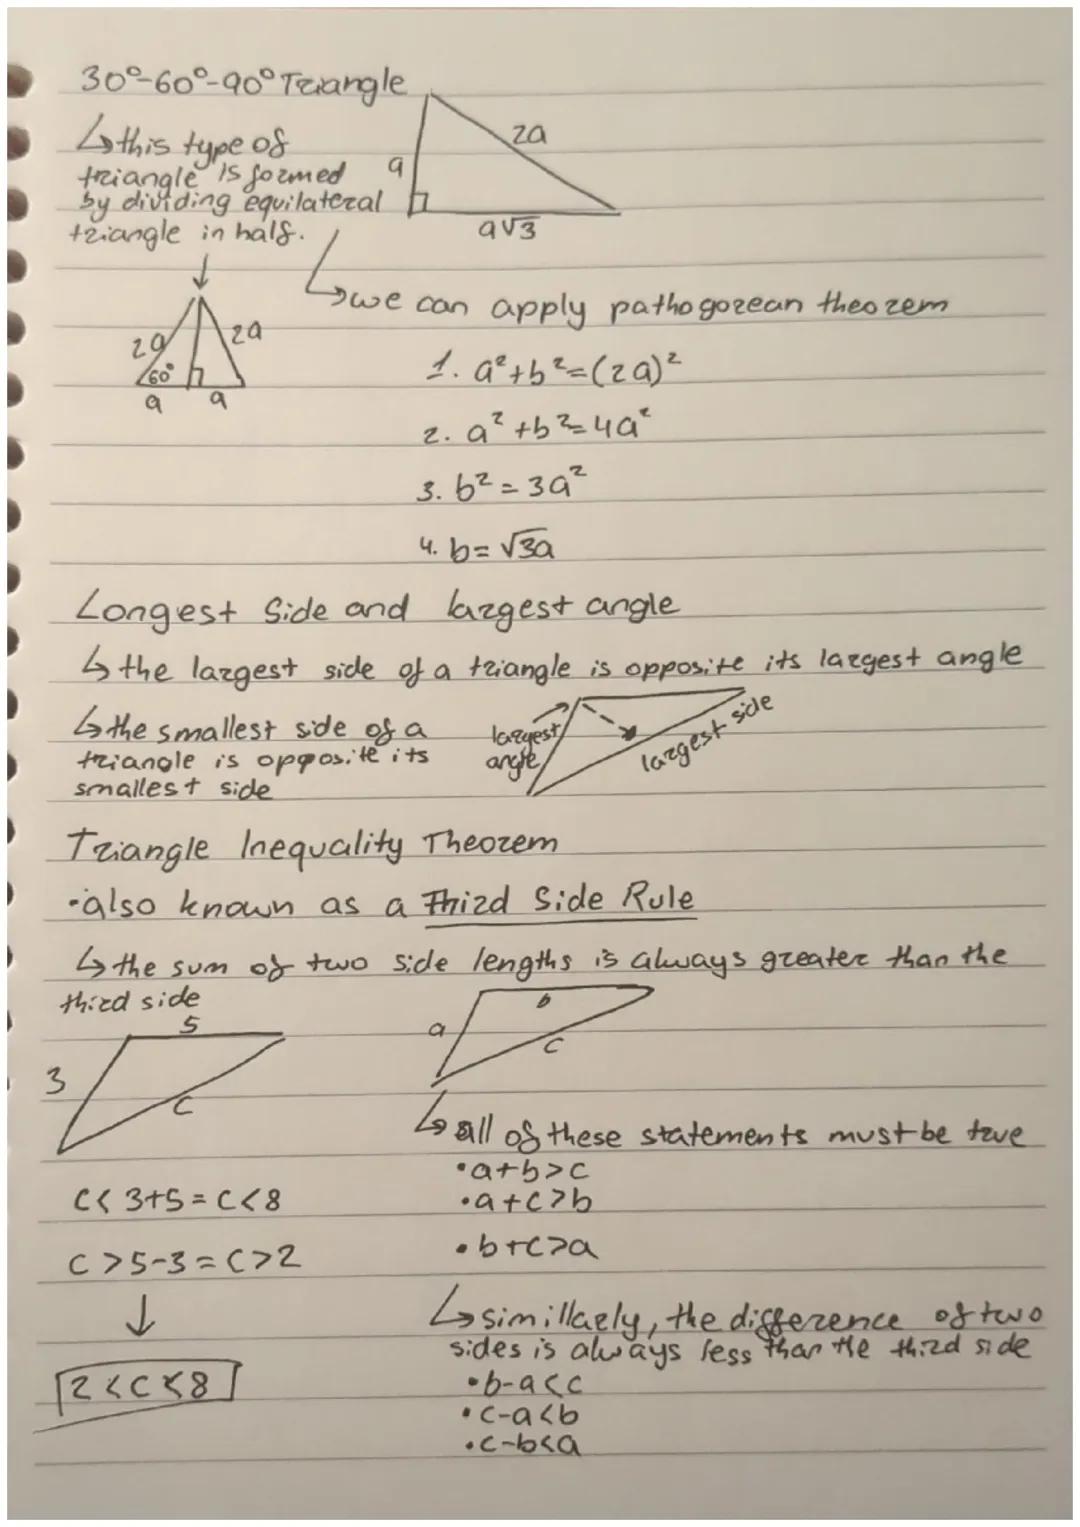 30°-60°-90° Triangle
↳ this type of
triangle is formed
by dividing equilateral
triangle in half.
a
2a
a√3
2a
2a
60°
a
a
↳ we can apply pathogorean theorem
1. a²+b²=(2a)²
2. a²+b²=4a²
3. b²=3a²
4. b=√3a
Longest Side and largest angle
↳ the largest side of a triangle is opposite its largest angle
↳ the smallest side of a
triangle is opposite its
smallest side
largest
angle
largest side
Triangle Inequality Theorem
•also known as a Third Side Rule
↳ the sum of two side lengths is always greater than the
third side
5
3
c
b
a
c
c< 3+5 = c<8
c >5-3 = c>2
↓
2<c<8
↳ all of these statements must be true
•a+b>c
•a+c>b
•b+c>a
↳ simillarly, the difference of two
sides is always less than the third side
•b-a<c
•c-a<b
•c-b<a